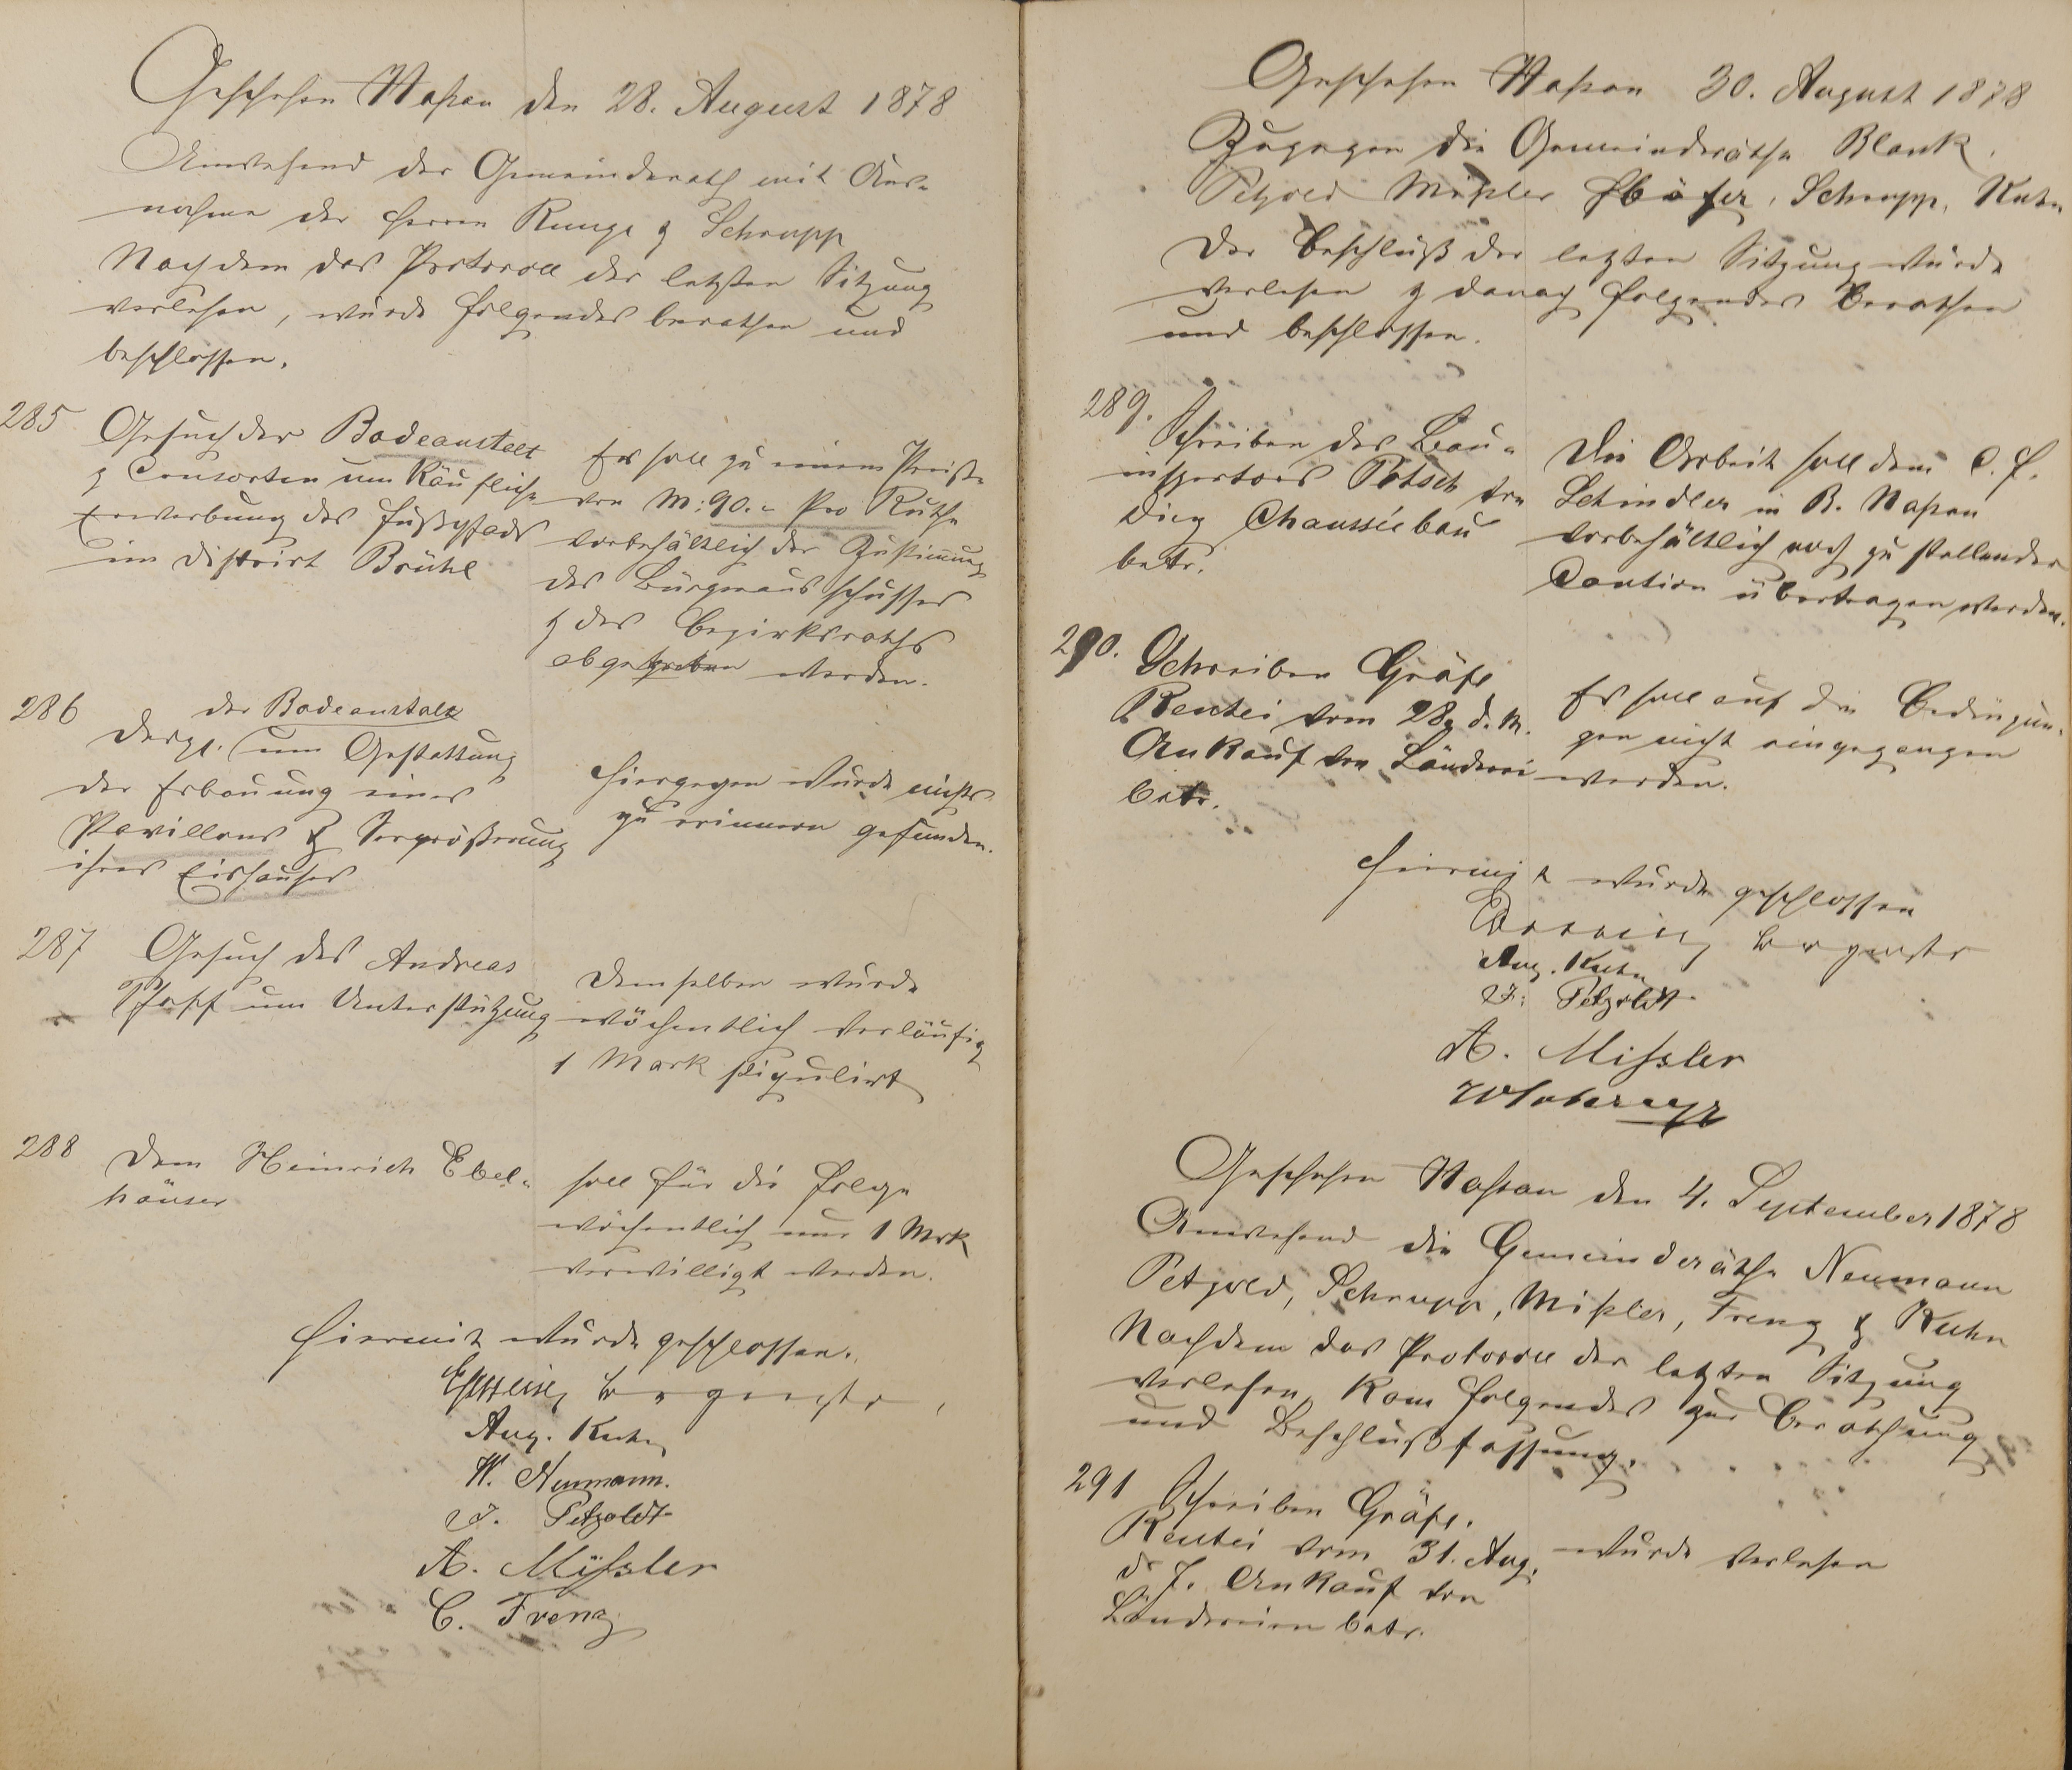 Geschehen Naßau den 28. August 1878
Anwesend der Gemeinderath mit Aus-
nahme der Herren Runge & Schrupp
Nachdem das Protocoll der letzten Sitzung
verlesen, wurde folgendes berathen und
beschlossen.
285 Gesuch der Badeanstalt
& Consorten um Käufliche
Erwerbung des Fußpfads
im District Brühl
Es soll zu einem Preise
von M: 90.- Pro Ruthe
vorbehältlich der Zustimmung
des Bürgerausschusses
& des Bezirksraths
abgegeben werden.
286 der Badeanstalt
Desgl. um Gestattung
der Erbauung eines
Pavillons & Vergrößerung
ihres Eishauses
Hiergegen wurde nichts
zu erinnern gefunden.
287 Gesuch des Andreas
Pfaff um Unterstützung
Demselben wurde
wöchentlich vorläufig
1 Mark stipulirt
288 Dem Heinrich Ebel-
häuser
soll für die Folge
wöchentlich nur 1 Mrk
verwilligt werden.
Hiermit wurde geschlossen.
Aug. Kuhn
W. Neumann.
J. Petzoldt
A. Mißler
C. Frenz
Geschehen Naßau 30. August 1878
Zugegen die Gemeinderäthe Blank,
Petzold Mißler Schrupp, Kuhn
Der Beschluß der letzten Sitzung wurde
verlesen & danach folgendes berathen
und beschlossen.
289. Schreiben des Bau-
inspectors Pötsch von
Diez Chausséebau
betr.
Die Arbeit soll dem C. F.
Schindler in B. Naßau
vorbehältlich noch zu stellender
Caution übertragen werden.
290. Schreiben Gräfl.
Rentei vom 28. d. M.
Ankauf von Länderei
betr.
Es soll auf die Bedingun-
gen nicht eingegangen
werden.
Hiermit wurde geschlossen
Aug. Kuhn
J. Petzoldt
A. Mißler
Geschehen Naßau den 4. September 1878
Anwesend die Gemeinderäthe Neumann
Petzold, Schrupp, Mißler, Frenz & Kuhn
Nachdem das Protocoll der letzten Sitzung
verlesen, kam folgendes zur Berathung
und Beschlußfassung.
291 Schreiben Gräfl.
Rentei vom 31. Aug.
d. J. Ankauf von
Ländereien betr.
wurde verlesen